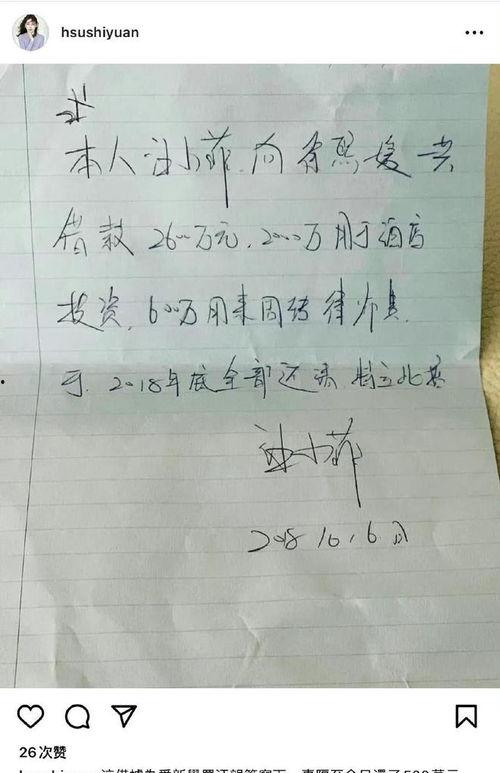 hsushiyuan
本人汪小菲向徐熙媛共
借款 2600万元，2000万用于酒店
投资，600万用来周转律师费，
于 2018年底全部还清 特立此据
汪小菲
26次赞